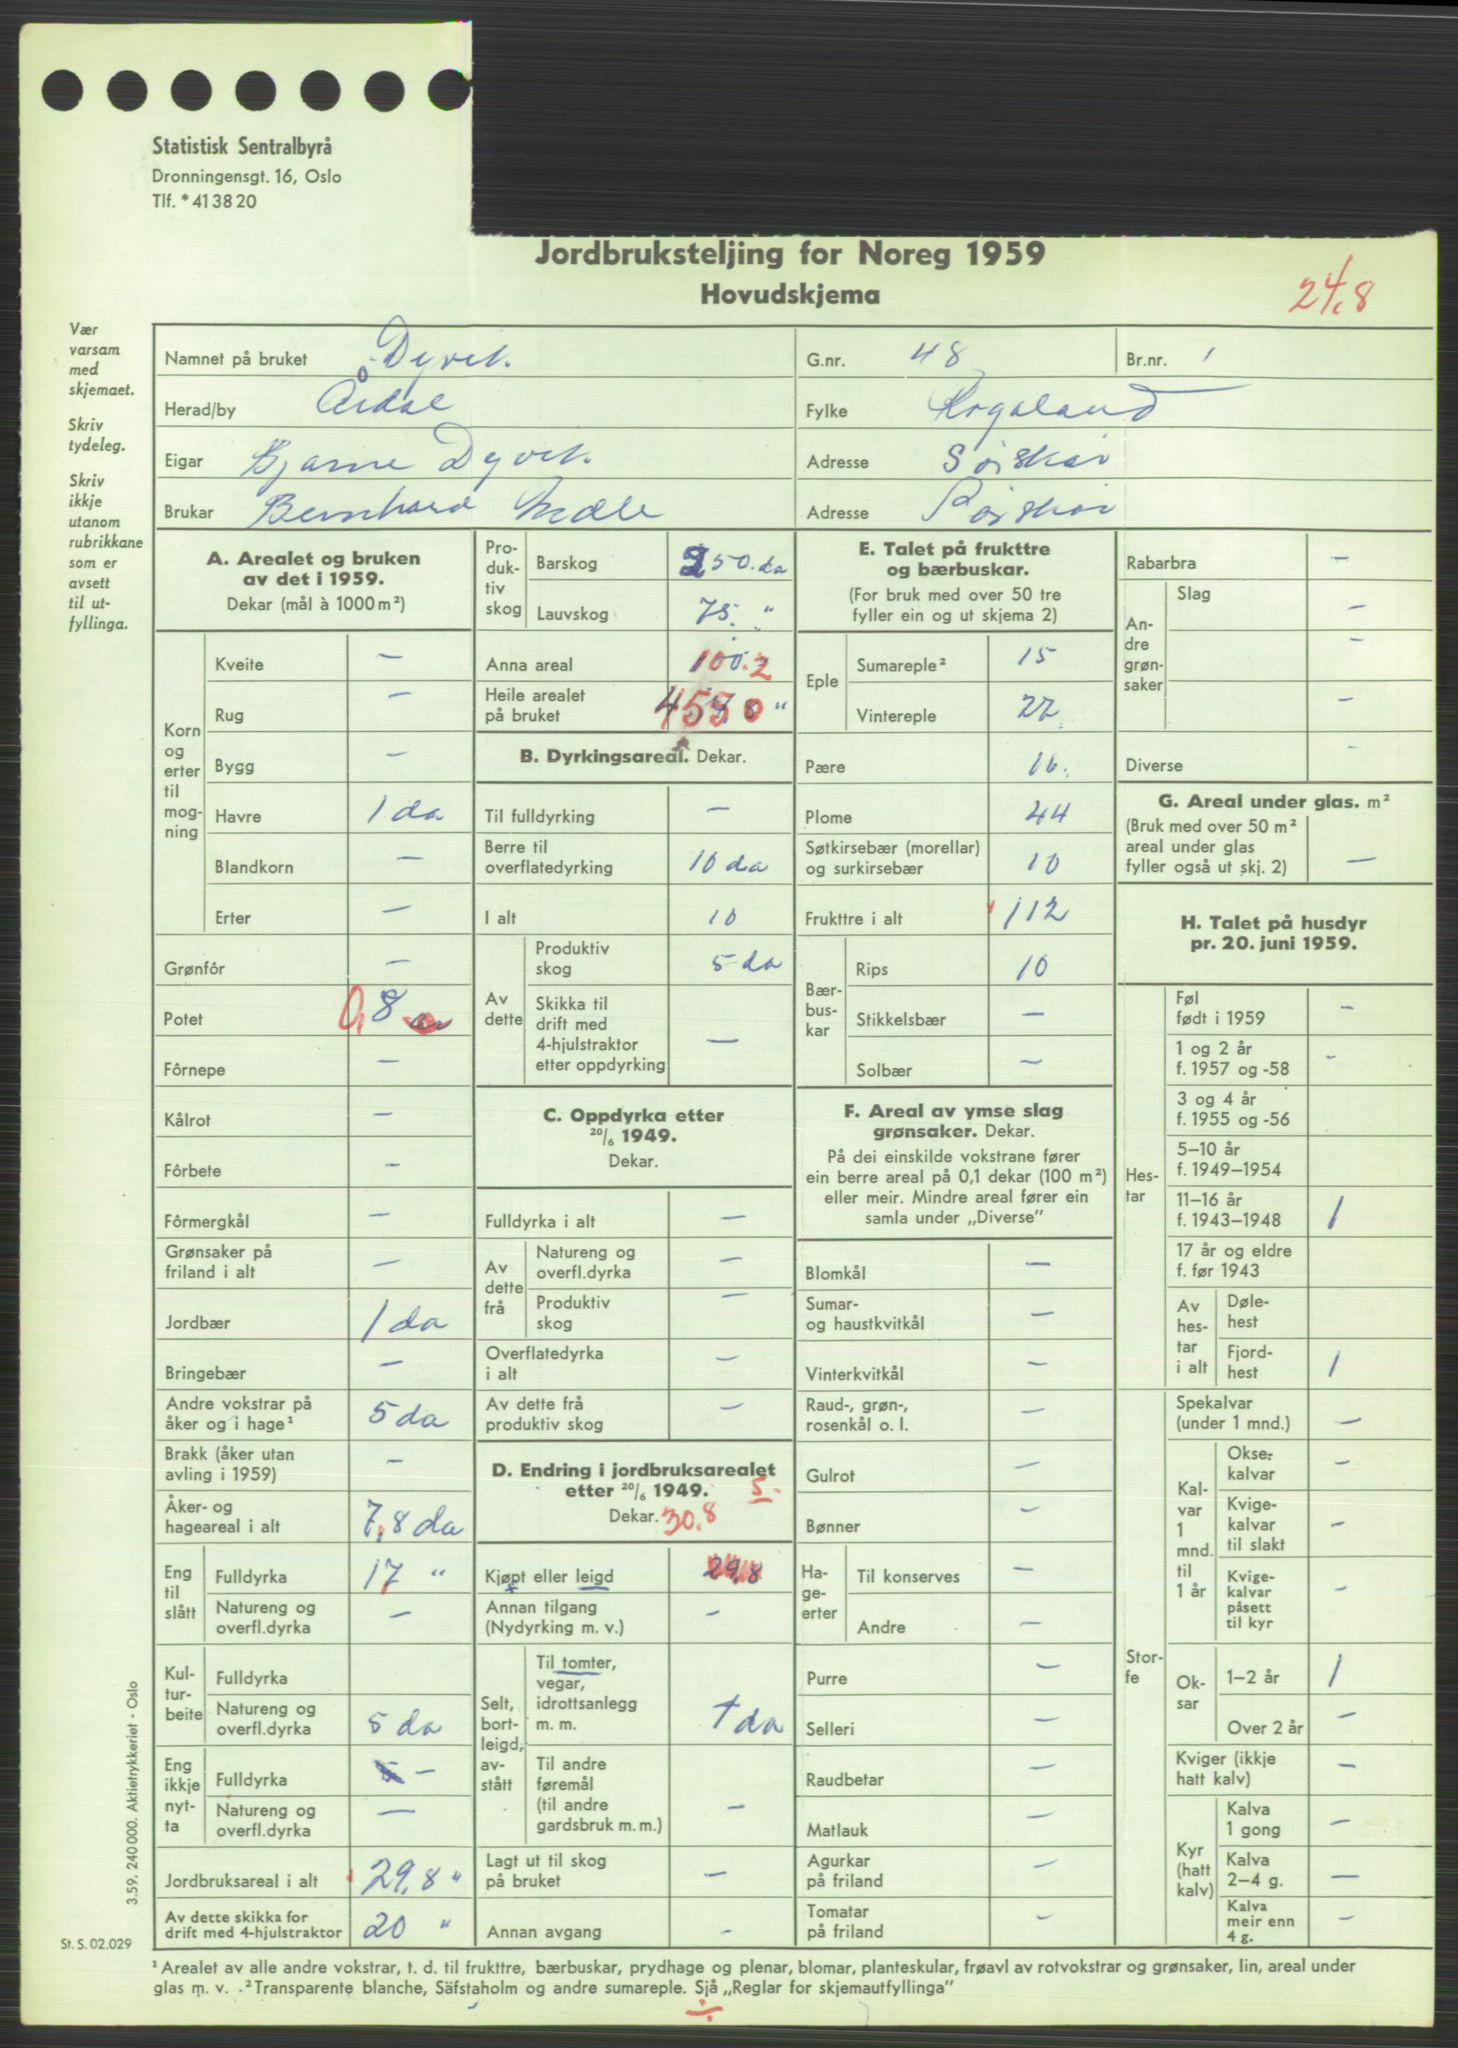 Statistisk Sentralbyrå
Dronningensgt. 16, Oslo
Tlf. *41 38 20
Jordbruksteljing for Noreg 1959
Hovudskjema
24,8
Vær
varsam
med
skjemaet.
Skriv
tydeleg.
Skriv
ikkje
utanom
rubrikkane
som er
avsett
til ut-
fyllinga.
Namnet på bruket Dyvik. G.nr. 48 Br.nr. 1
Herad/by Årdal Fylke Rogaland
Eigar Bjarne Dyvik. Adresse
Brukar Bernhard Adresse
A. Arealet og bruken
av det i 1959.
Dekar (mål à 1000 m²)
Korn og erter til mogning
Kveite –
Rug –
Bygg –
Havre 1 da
Blandkorn –
Erter –
Grønfôr –
Potet 0,8
Fôrnepe –
Kålrot –
Fôrbete –
Fôrmergkål –
Grønsaker på
friland i alt –
Jordbær 1 da
Bringebær –
Andre vokstrar på
åker og i hage¹ 5 da
Brakk (åker utan
avling i 1959) –
Åker- og
hageareal i alt 7,8 da
Eng til slått
Fulldyrka 17 "
Natureng og
overfl.dyrka –
Kul-
tur-
beite
Fulldyrka
Natureng og
overfl.dyrka 5 da
Eng ikkje nyt-
ta
Fulldyrka –
Natureng og
overfl.dyrka –
Jordbruksareal i alt 29,8 "
Av dette skikka for
drift med 4-hjulstraktor 20 "
Pro-
duk-
tiv
skog
Barskog 250. da
Lauvskog 75. "
Anna areal 100.2
Heile arealet
på bruket 455 0 "
B. Dyrkingsareal. Dekar.
Til fulldyrking –
Berre til
overflatedyrking 10 da
I alt 10
Av
dette
Produktiv
skog 5 da
Skikka til
drift med
4-hjulstraktor
etter oppdyrking –
C. Oppdyrka etter
20/6 1949.
Dekar.
Fulldyrka i alt –
Av
dette
frå
Natureng og
overfl.dyrka –
Produktiv
skog –
Overflatedyrka
i alt –
Av dette frå
produktiv skog –
D. Endring i jordbruksarealet
etter 20/6 1949. 5.
Dekar. 30,8
Kjøpt eller leigd 29,8
Annan tilgang
(Nydyrking m. v.) –
Selt,
bort-
leigd,
av-
stått
Til tomter,
vegar,
idrottsanlegg
m. m. 1 da
Til andre
føremål
(til andre
gardsbruk m. m.) –
Lagt ut til skog
på bruket –
Annan avgang –
E. Talet på frukttre
og bærbuskar.
(For bruk med over 50 tre
fyller ein og ut skjema 2)
Eple
Sumareple² 15
Vintereple 27
Pære 16.
Plome 44
Søtkirsebær (morellar)
og surkirsebær 10
Frukttre i alt 112
Bær-
bus-
kar
Rips 10
Stikkelsbær –
Solbær –
F. Areal av ymse slag
grønsaker. Dekar.
På dei einskilde vokstrane fører
ein berre areal på 0,1 dekar (100 m²)
eller meir. Mindre areal fører ein
samla under „Diverse”
Blomkål –
Sumar-
og haustkvitkål –
Vinterkvitkål –
Raud-, grøn-,
rosenkål o. l. –
Gulrot –
Bønner –
Ha-
ge-
erter
Til konserves –
Andre –
Purre –
Selleri –
Raudbetar –
Matlauk –
Agurkar
på friland –
Tomatar
på friland –
Rabarbra –
An-
dre
grøn-
saker
Slag –
–
–
Diverse –
G. Areal under glas. m²
(Bruk med over 50 m²
areal under glas
fyller også ut skj. 2) –
H. Talet på husdyr
pr. 20. juni 1959.
Hes-
tar
Føl
født i 1959 –
1 og 2 år
f. 1957 og -58 –
3 og 4 år
f. 1955 og -56
5–10 år
f. 1949–1954
11–16 år
f. 1943–1948 1
17 år og eldre
f. før 1943
Av
hes-
tar
i alt
Døle-
hest
Fjord-
hest 1
Stor-
fe
Spekalvar
(under 1 mnd.) –
Kal-
var
1
mnd.
til
1 år
Okse-
kalvar –
Kvige-
kalvar
til slakt –
Kvige-
kalvar
påsett
til kyr –
Ok-
sar
1–2 år 1
Over 2 år –
Kviger (ikkje
hatt kalv) –
Kyr
(hatt
kalv)
Kalva
1 gong –
Kalva
2–4 g. –
Kalva
meir enn
4 g. –
3.59. 240 000. Aktietrykkeriet - Oslo
St. S. 02.029
¹ Arealet av alle andre vokstrar, t. d. til frukttre, bærbuskar, prydhage og plenar, blomar, planteskular, frøavl av rotvokstrar og grønsaker, lin, areal under
glas m. v. ² Transparente blanche, Säfstaholm og andre sumareple. Sjå „Reglar for skjemautfyllinga”